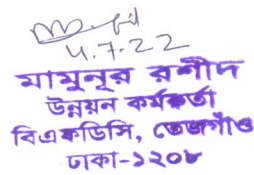 4.7.22
মামুনূর রশীদ
উন্নয়ন কর্মকর্তা
বিএফডিসি, তেজগাঁও
ঢাকা-১২০৮